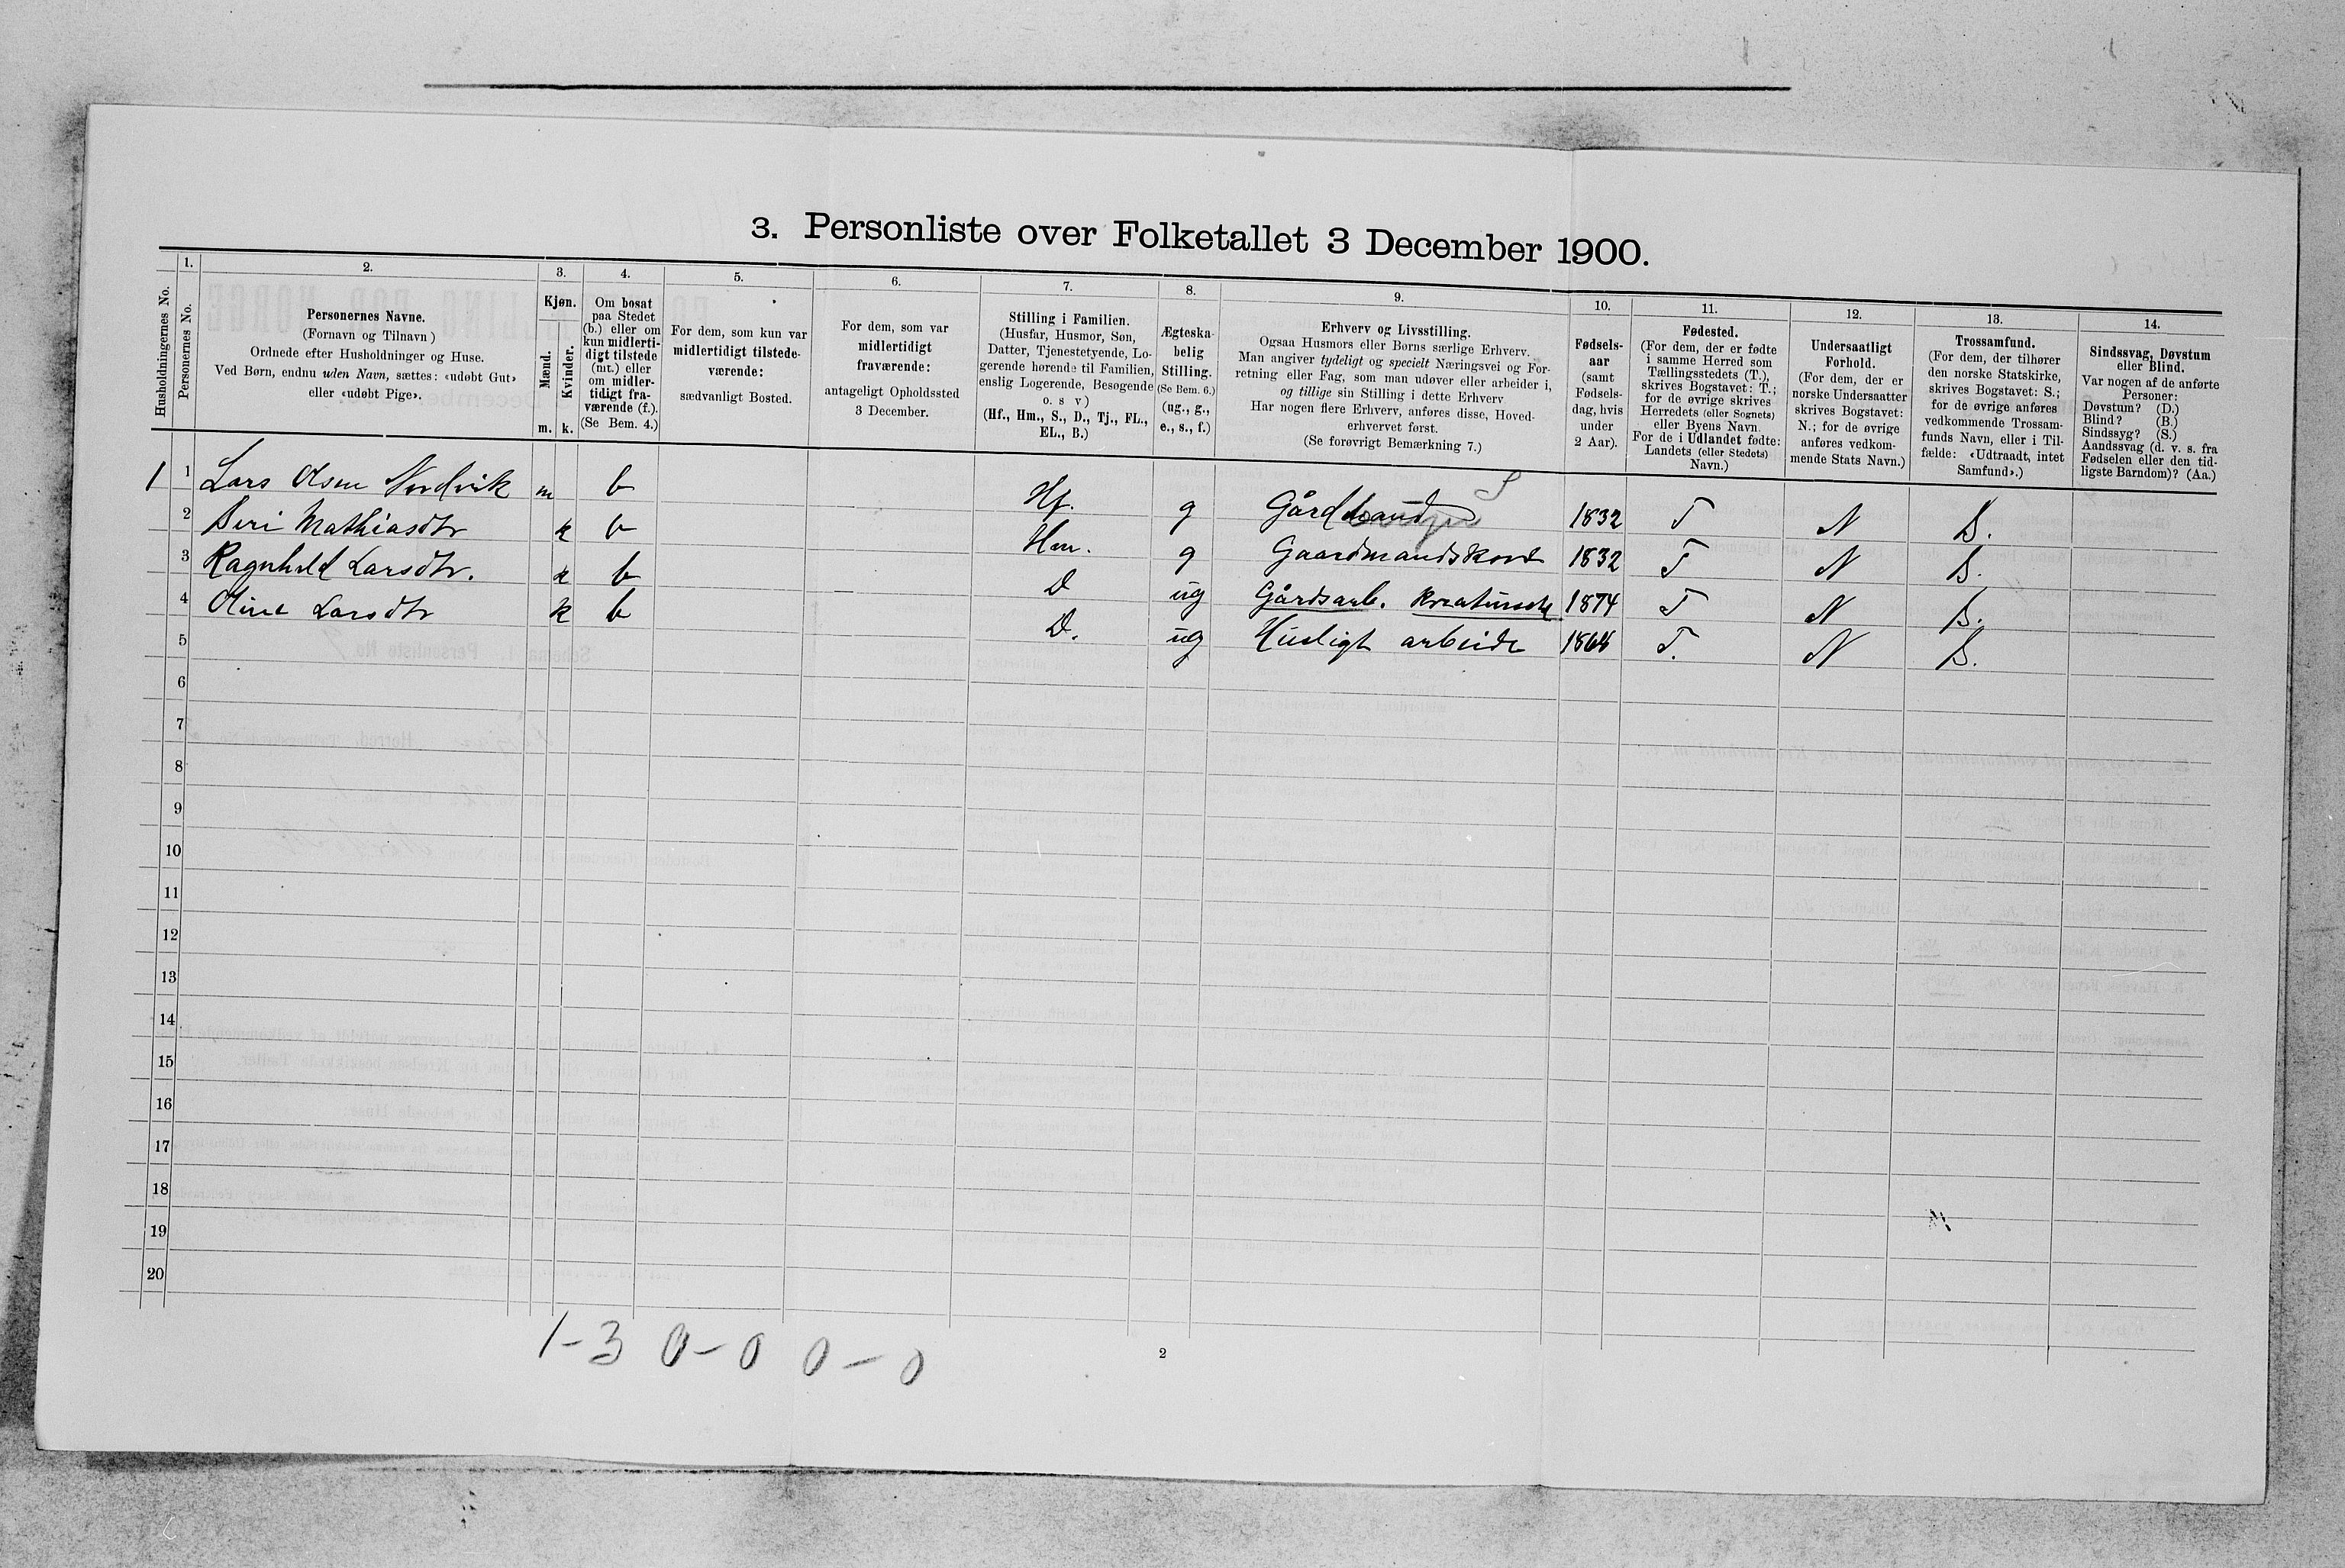 3. Personliste over Folketallet 3 December 1900.
1. 2. 3. 4. 5. 6. 7. 8. 9. 10. 11. 12. 13. 14.
Husholdningernes No.
Personernes No.
Personernes Navne.
(Fornavn og Tilnavn)
Ordnede efter Husholdninger og Huse.
Ved Børn, endnu uden Navn, sættes: «udøbt Gut»
eller «udøbt Pige».
Kjøn.
Mænd.
Kvinder.
m. k.
Om bosat
paa Stedet
(b.) eller om
kun midlerti-
digt tilstede
(mt.) eller
om midler-
tidigt fra-
værende (f.).
(Se Bem. 4.)
For dem, som kun var
midlertidigt tilstede-
værende:
sædvanligt Bosted.
For dem, som var
midlertidigt
fraværende:
antageligt Opholdssted
3 December.
Stilling i Familien.
(Husfar, Husmor, Søn,
Datter, Tjenestetyende, Lo-
gerende hørende til Familien,
enslig Logerende, Besøgende
o. s v)
(Hf., Hm., S., D., Tj., FL.,
EL., B.)
Ægteska-
belig
Stilling.
(Se Bem. 6.)
(ug., g.,
e., s., f.)
Erhverv og Livsstilling.
Ogsaa Husmors eller Børns særlige Erhverv.
Man angiver tydeligt og specielt Næringsvei og For-
retning eller Fag, som man udøver eller arbeider i,
og tillige sin Stilling i dette Erhverv
Har nogen flere Erhverv, anføres disse, Hoved-
erhvervet først.
(Se forøvrigt Bemærkning 7.)
Fødsels-
aar
(samt
Fødsels-
dag, hvis
under
2 Aar).
Fødested.
(For dem, der er fødte
i samme Herred som
Tællingsstedets (T.),
skrives Bogstavet: T.;
for de øvrige skrives
Herredets (eller Sognets)
eller Byens Navn.
For de i Udlandet fødte:
Landets (eller Stedets)
Navn.)
Undersaatligt
Forhold.
(For dem, der er
norske Undersaatter
skrives Bogstavet:
N.; for de øvrige
anføres vedkom-
mende Stats Navn.)
Trossamfund.
(For dem, der tilhører
den norske Statskirke,
skrives Bogstavet: S.;
for de øvrige anføres
vedkommende Trossam-
funds Navn, eller i Til-
fælde: «Udtraadt, intet
Samfund».)
Sindssvag, Døvstum
eller Blind.
Var nogen af de anførte
Personer:
Døvstum? (D.)
Blind? (B.)
Sindssyg? (S.)
Aandssvag (d. v. s. fra
Fødselen eller den tid-
ligste Barndom)? (Aa.)
1 1 Lars Olsen Nordvik m b Hf. g Gårdmand S 1832 T N S.
2 Siri Mathiasdtr k b Hm. g Gaardmandskone 1832 T N S.
3 Ragnhild Larsdtr. k b D ug Gårdsarb. Kreaturstel 1874 T N S.
4 Oline Larsdtr k b D. ug Husligt arbeide T. N S.
5
6
7
8
9
10
11
12
13
14
15
16
17
18
19
20
1-3 0-0 0-0
2